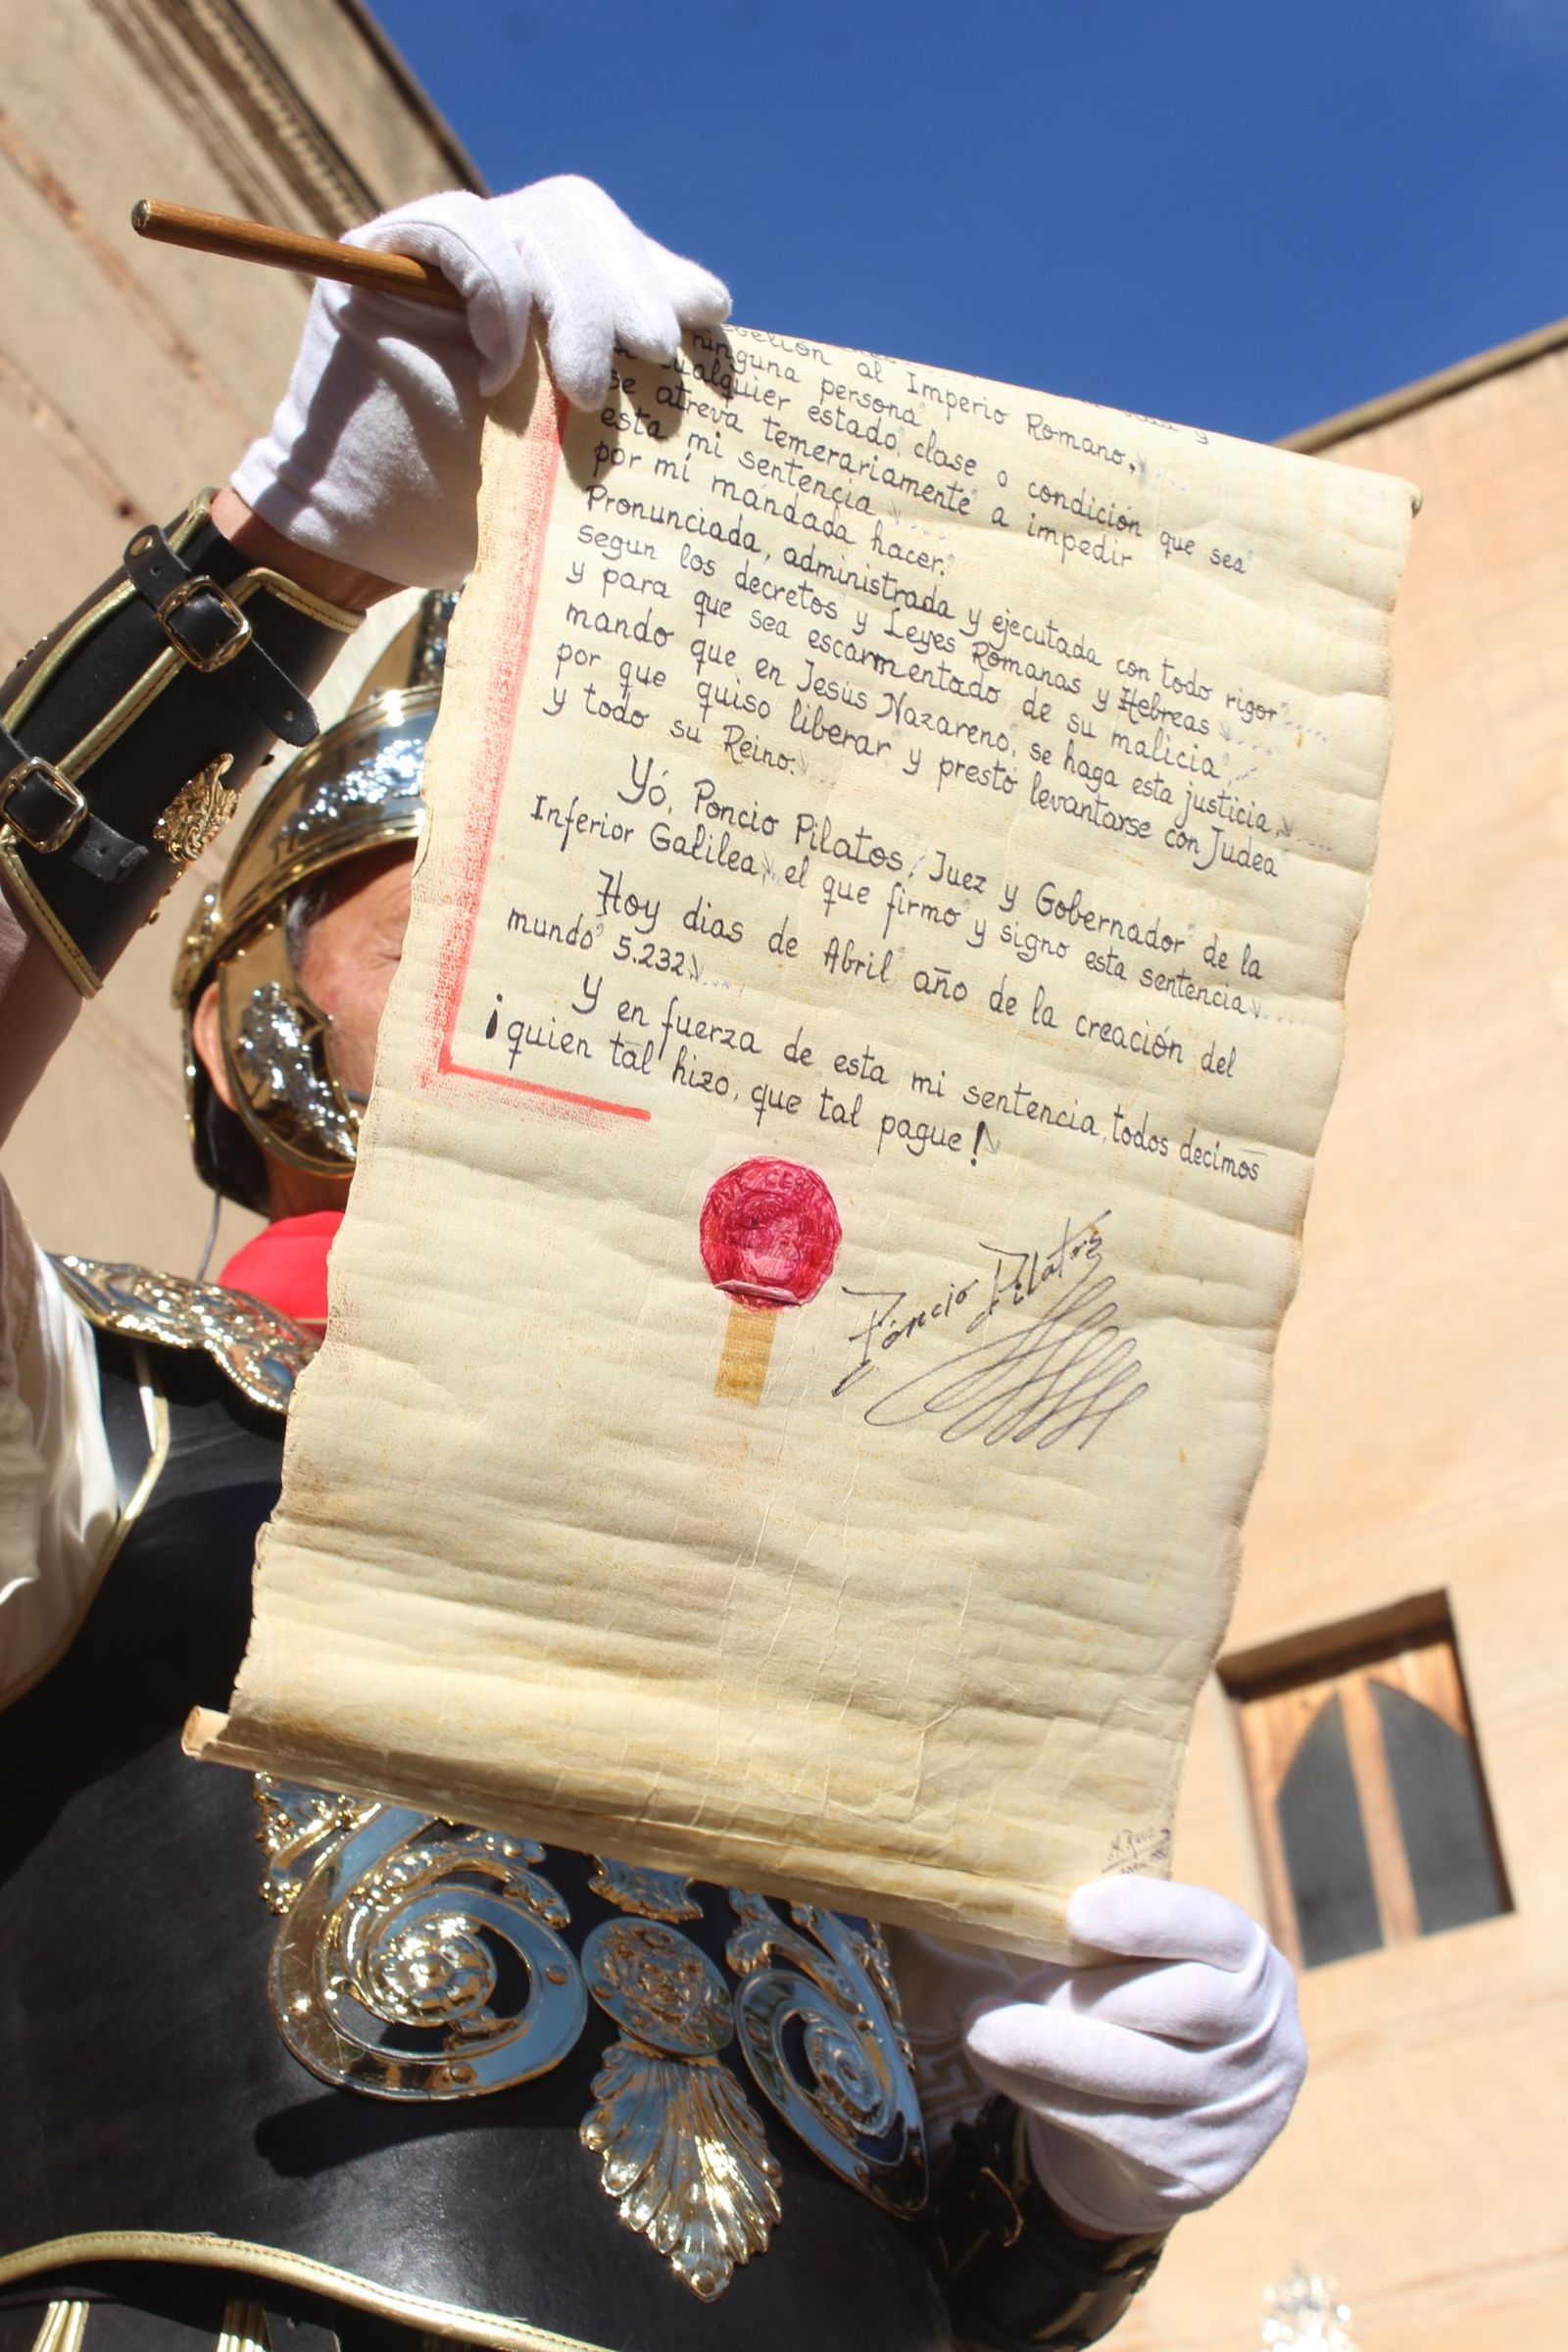 al Imperio Romano,
ninguna persona
cualquier estado, clase o condición que sea
se atreva temerariamente a impedir
esta mi sentencia
por mí mandada hacer.
Pronunciada, administrada y ejecutada con todo rigor
segun los decretos y Leyes Romanas y Hebreas
y para que sea escarmentado de su malicia
mando que en Jesús Nazareno, se haga esta justicia,
por que quiso liberar y presto levantarse con Judea
y todo su Reino.
Yó, Poncio Pilatos, Juez y Gobernador de la
Inferior Galilea, el que firmo y signo esta sentencia
Hoy dias de Abril año de la creación del
mundo 5.232
Y en fuerza de esta mi sentencia, todos decimos
¡quien tal hizo, que tal pague!
Poncio Pilatos